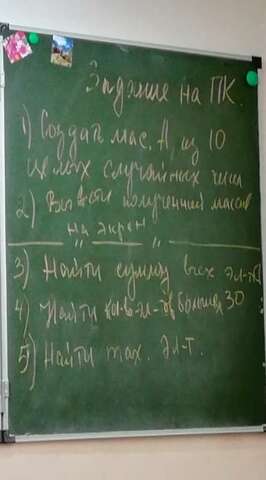 Задание на ПК.
1) Создать мас. А из 10
целых случайных чисел
2) Вывести полученный массив
на экран
3) Найти сумму всех эл-тов
4) Найти кол-во эл-тов больших 30
5) Найти max. эл-т.